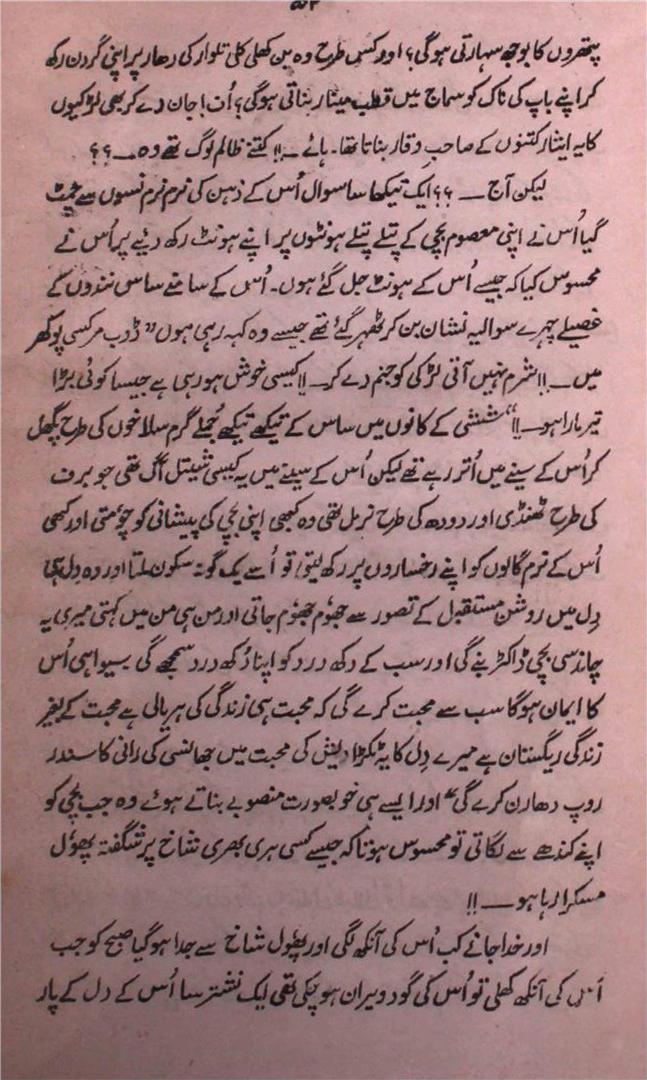 پتھروں کا بوجھ سہارتی ہوگی؟ اور کس طرح وہ بن کھلی کلی تلوار کی دھار پر اپنی گردن رکھ
کر اپنے باپ کی ناک کو سماج میں قطب مینار بناتی ہوگی؟ اُف! جان دے کر بھی لڑکیوں
کا یہ ایثار کتنوں کے صاحبِ وقار بناتا تھا۔ ہائے ــ!! کتنے ظالم لوگ تھے وہ ــ؟؟
لیکن آج ــ ؟؟ ایک تیکھا سا سوال اُس کے ذہن کی نرم نرم نسوں سے چمٹ
گیا اُس نے اپنی معصوم بچی کے پتلے پتلے ہونٹوں پر اپنے ہونٹ رکھ دیئے پر اُس نے
محسوس کیا کہ جیسے اُس کے ہونٹ جل گئے ہوں۔ اُس کے سامنے ساس نندوں کے
غصیلے چہرے سوالیہ نشان بن کر ٹھہر گئے تھے جیسے وہ کہہ رہی ہوں ”ڈوب مر کسی پوکھر
میں ــ!! شرم نہیں آتی لڑکی کو جنم دے کر ــ!! کیسی خوش ہو رہی ہے جیسا کوئی بڑا
تیر مارا ہو ــ!!“ ششی کے کانوں میں ساس کے تیکھے تیکھے جُملے گرم سلاخوں کی طرح پگھل
کر اُس کے سینے میں اُتر رہے تھے لیکن اُس کے سینے میں یہ کیسی شیتل آگ تھی جو برف
کی طرح ٹھنڈی اور دودھ کی طرح نرمل تھی وہ کبھی اپنی بچی کی پیشانی کو چوُمتی اور کبھی
اُس کے نرم گالوں کو اپنے رخساروں پر رکھ لیتی تو اُسے یک گونہ سکون ملتا اور وہ دِل ہی
دِل میں روشن مستقبل کے تصور سے جھوُم جھوُم جاتی اور من ہی من میں کہتی میری یہ
چاند سی بچی ڈاکٹر بنے گی اور سب کے دکھ درد کو اپنا دُکھ درد سمجھے گی سیوا ہی اُس
کا ایمان ہوگا سب سے محبت کرے گی کہ محبت ہی زندگی کی ہریالی ہے محبت کے بغیر
زندگی ریگستان ہے میرے دِل کا یہ ٹکڑا دیش کی محبت میں جھانسی کی رانی کا سندر
روپ دھارن کرے گی“ اور ایسے ہی خوبصورت منصوبے بناتے ہوئے وہ جب بچی کو
اپنے کندھے سے لگاتی تو محسوس ہوتا کہ جیسے کسی ہری بھری شاخ پر شگفتہ پھوُل
مسکرا رہا ہو ــ!!
اور خدا جانے کب اُس کی آنکھ لگی اور پھوُل شاخ سے جدا ہو گیا صبح کو جب
اُس کی آنکھ کھلی تو اُس کی گود ویران ہو چکی تھی ایک نشتر سا اُس کے دل کے پار